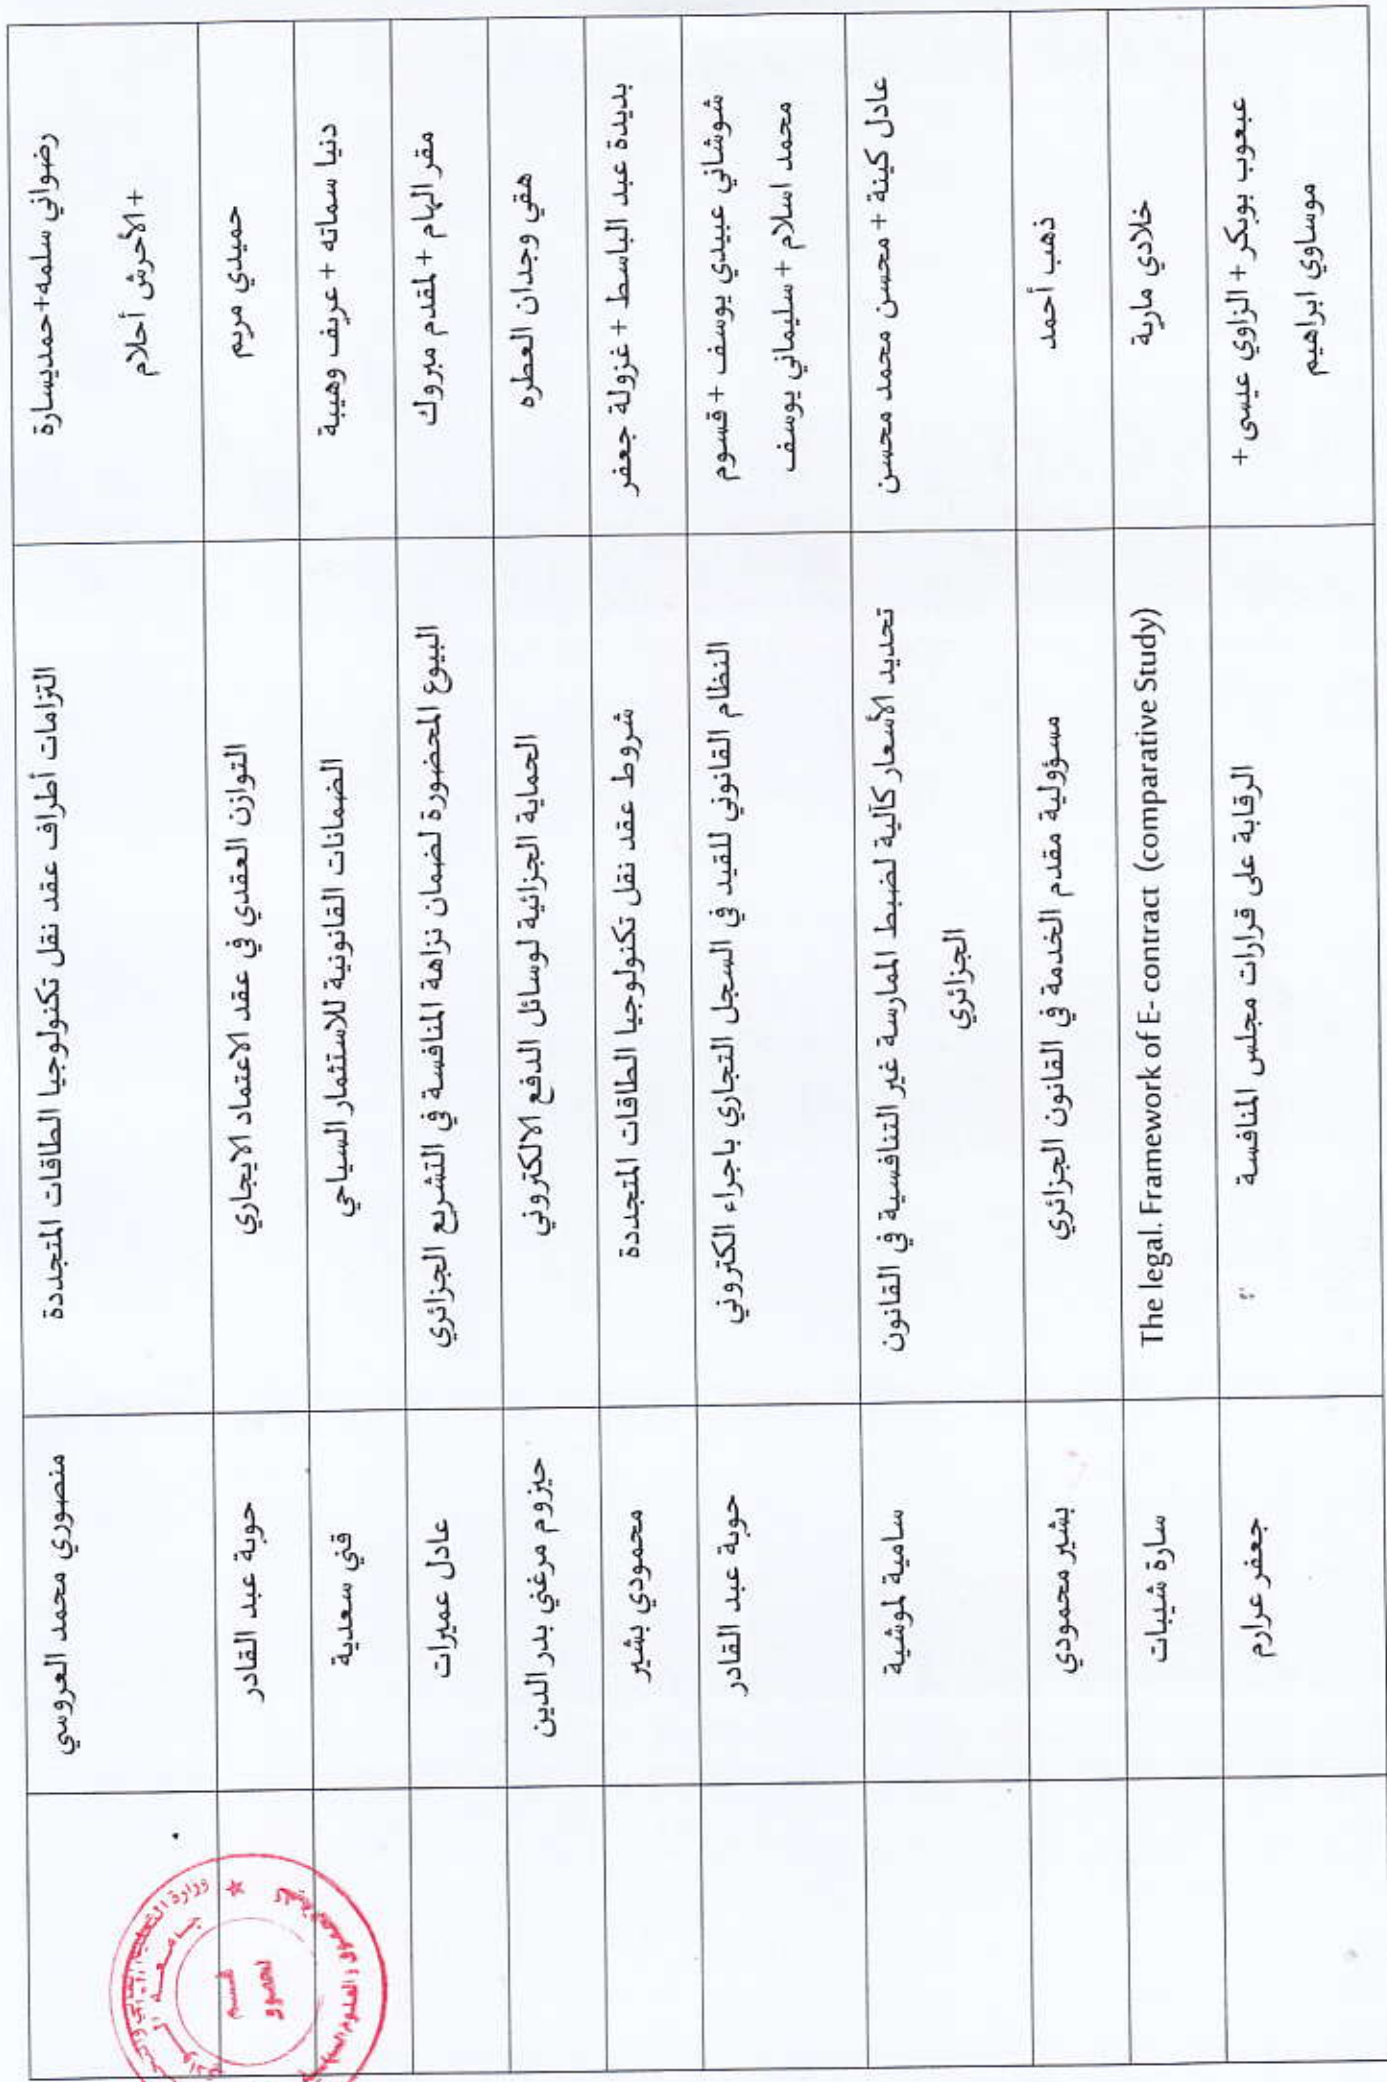 رضواني سلمه+حمديسارة
+الأحرش أحلام
التزامات أطراف عقد نقل تكنولوجيا الطاقات المتجددة
منصوري محمد العروسي
حميدي مريم
التوازن العقدي في عقد الاعتماد الايجاري
حوبة عبد القادر
دنيا سماته + عريف وهيبة
الضمانات القانونية للاستثمار السياحي
قني سعدية
مقر الهام + لمقدم مبروك
البيوع المحضورة لضمان نزاهة المنافسة في التشريع الجزائري
عادل عميرات
هقي وجدان العطره
الحماية الجزائية لوسائل الدفع الالكتروني
حيزوم مرغني بدر الدين
بديدة عبد الباسط + غزولة جعفر
شروط عقد نقل تكنولوجيا الطاقات المتجددة
محمودي بشير
شوشاني عبيدي يوسف + قسوم
محمد اسلام + سليماني يوسف
النظام القانوني للقيد في السجل التجاري باجراء الكتروني
حوبة عبد القادر
عادل كينة + محسن محمد محسن
تحديد الأسعار كآلية لضبط الممارسة غير التنافسية في القانون
الجزائري
سامية لموشية
ذهب أحمد
مسؤولية مقدم الخدمة في القانون الجزائري
بشير محمودي
خلادي مارية
The legal. Framework of E- contract (comparative Study)
سارة شيبات
عبعوب بوبكر + الزاوي عيسى +
موساوي ابراهيم
الرقابة على قرارات مجلس المنافسة
جعفر عرارم
وزارة التعليم العالي
جامعة الوادي
قسم
الحقوق